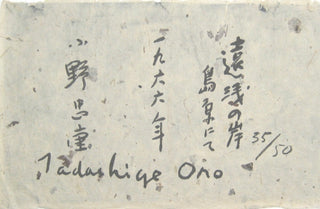 遠浅の岸
島原にて
35/50
一九六六年
小野忠重
Tadashige Ono